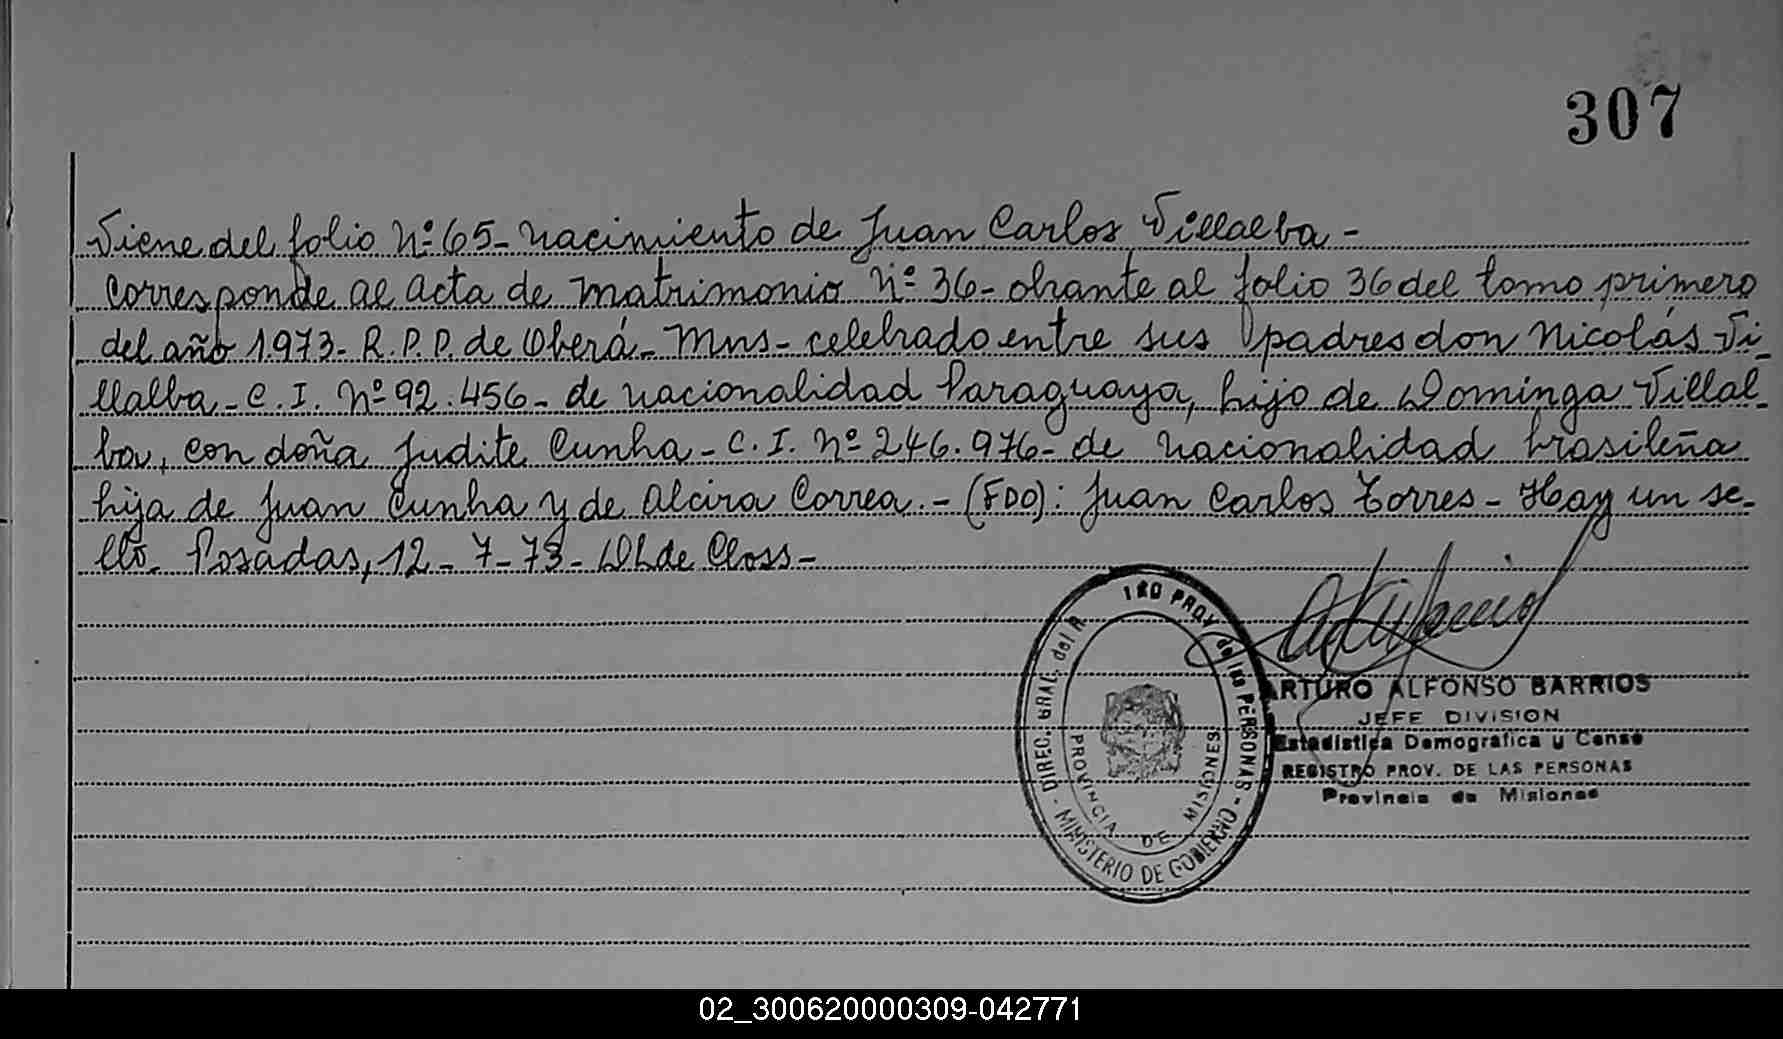 307
Viene del folio Nº 65- nacimiento de Juan Carlos Villalba -
Corresponde al acta de matrimonio Nº 36- obrante al folio 36 del tomo primero
del año 1973- R.P.P. de Oberá- Mns- celebrado entre sus padres don Nicolás Vi-
llalba - C.I. Nº 92.456- de nacionalidad Paraguaya, hijo de Dominga Villal-
ba, con doña Judite Cunha - C.I. Nº 246.976- de nacionalidad brasileña
hija de Juan Cunha y de Alcira Correa.- (FDO): Juan Carlos Torres - Hay un se-
llo. Posadas, 12 - 7 - 73 - de Closs -
DIREC. GRAL. del R PROV. de las PERSONAS - MINISTERIO DE GOBIERNO -
PROVINCIA DE MISIONES
ARTURO ALFONSO BARRIOS
JEFE DIVISION
Estadistica Demografica y Censo
REGISTRO PROV. DE LAS PERSONAS
Provincia de Misiones
02_300620000309-042771